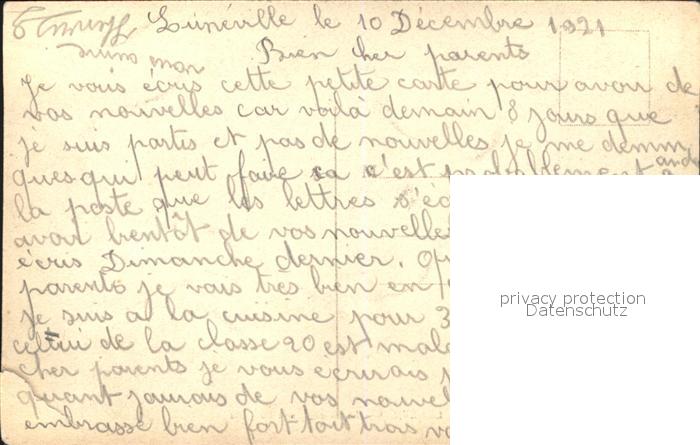 Lunéville le 10 Décembre 1921
Bien cher parents
Je vous écris cette petite carte pour avoir de
vos nouvelles car voilà demain 8 jours que
je suis partis et pas de nouvelles je me demm
and
quesqui peut faire sa c'est probablement a
la poste que les lettres s'é
avoir bientôt de vos nouvelle
écris Dimanche dernier.
parents je vais très bien en
je suis a la cuisine pour 3
celui de la classe 20 est mal
cher parents je vous écrirais
quant jaurais de vos nouvel
embrasse bien fort tout trois vo
privacy protection
Datenschutz